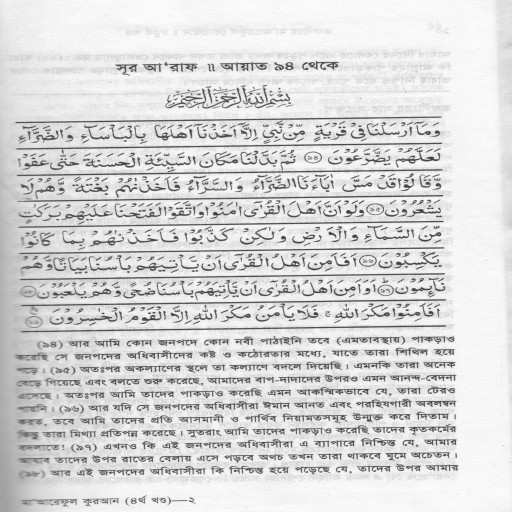 সূরা আ'রাফ ॥ আয়াত ৯৪ থেকে
بِسْمِ اللّٰهِ الرَّحْمٰنِ الرَّحِيْمِ
وَمَآ اَرْسَلْنَا فِيْ قَرْيَةٍ مِّنْ نَّبِيٍّ اِلَّآ اَخَذْنَآ اَهْلَهَا بِالْبَاْسَآءِ وَالضَّرَّآءِ
لَعَلَّهُمْ يَضَّرَّعُوْنَ ۝ ثُمَّ بَدَّلْنَا مَكَانَ السَّيِّئَةِ الْحَسَنَةَ حَتّٰى عَفَوْا
وَّقَالُوْا قَدْ مَسَّ اٰبَآءَنَا الضَّرَّآءُ وَالسَّرَّآءُ فَاَخَذْنٰهُمْ بَغْتَةً وَّهُمْ لَا
يَشْعُرُوْنَ ۝ وَلَوْ اَنَّ اَهْلَ الْقُرٰٓى اٰمَنُوْا وَاتَّقَوْا لَفَتَحْنَا عَلَيْهِمْ بَرَكٰتٍ
مِّنَ السَّمَآءِ وَالْاَرْضِ وَلٰكِنْ كَذَّبُوْا فَاَخَذْنٰهُمْ بِمَا كَانُوْا
يَكْسِبُوْنَ ۝ اَفَاَمِنَ اَهْلُ الْقُرٰٓى اَنْ يَّاْتِيَهُمْ بَاْسُنَا بَيَاتًا وَّهُمْ
نَآئِمُوْنَ ۝ اَوَاَمِنَ اَهْلُ الْقُرٰٓى اَنْ يَّاْتِيَهُمْ بَاْسُنَا ضُحًى وَّهُمْ يَلْعَبُوْنَ ۝
اَفَاَمِنُوْا مَكْرَ اللّٰهِ ۚ فَلَا يَاْمَنُ مَكْرَ اللّٰهِ اِلَّا الْقَوْمُ الْخٰسِرُوْنَ ۝
(৯৪) আর আমি কোন জনপদে কোন নবী পাঠাইনি তবে (এমতাবস্থায়) পাকড়াও
করেছি সে জনপদের অধিবাসীদের কষ্ট ও কঠোরতার মধ্যে, যাতে তারা শিথিল হয়ে
পড়ে। (৯৫) অতঃপর অকল্যাণের স্থলে তা কল্যাণে বদলে দিয়েছি। এমনকি তারা অনেক
বেড়ে গিয়েছে এবং বলতে শুরু করেছে, আমাদের বাপ-দাদাদের উপরও এমন আনন্দ-বেদনা
এসেছে। অতঃপর আমি তাদের পাকড়াও করেছি এমন আকস্মিকভাবে যে, তারা টেরও
পায়নি। (৯৬) আর যদি সে জনপদের অধিবাসীরা ঈমান আনত এবং পরহিযগারী অবলম্বন
করত, তবে আমি তাদের প্রতি আসমানী ও পার্থিব নিয়ামতসমূহ উন্মুক্ত করে দিতাম।
কিন্তু তারা মিথ্যা প্রতিপন্ন করেছে। সুতরাং আমি তাদের পাকড়াও করেছি তাদের কৃতকর্মের
বদলাতে! (৯৭) এখনও কি এই জনপদের অধিবাসীরা এ ব্যাপারে নিশ্চিন্ত যে, আমার
আযাব তাদের উপর রাতের বেলায় এসে পড়বে অথচ তখন তারা থাকবে ঘুমে অচেতন।
(৯৮) আর এই জনপদের অধিবাসীরা কি নিশ্চিন্ত হয়ে পড়েছে যে, তাদের উপর আমার
মা'আরেফুল কুরআন (৪র্থ খণ্ড)—২